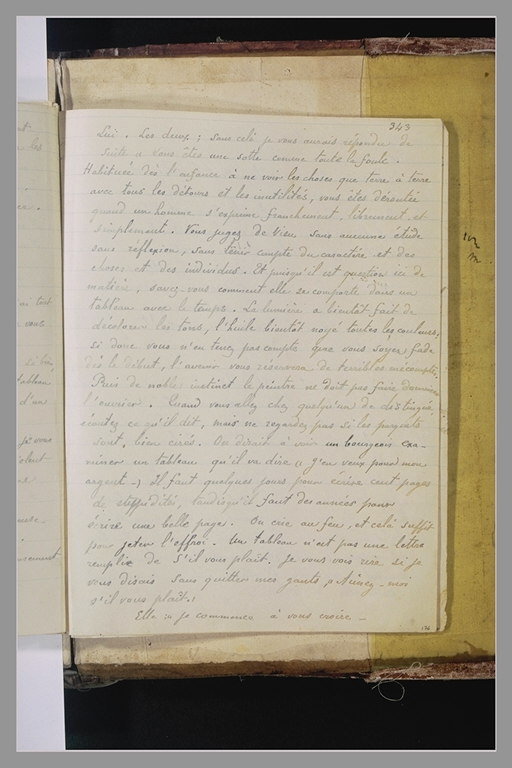 343
Lui. Les deux ; sans celà je vous aurais répondu de
suite " Vous êtes une sotte comme toute la foule.
Habituée dès l'enfance à ne voir les choses que terre à terre
avec tous les détours et les inutilités, vous êtes déroutée
quand un homme s'exprime franchement, librement et
simplement. Vous jugez de visu sans aucune étude
sans réflexion, sans tenir compte du caractère et des
choses et des individus. Et puisqu'il est question ici de
matière, savez-vous comment elle se comporte dans un
tableau avec le temps. La lumière a bientôt fait de
décolorer les tons, l'huile bientôt noyé toutes les couleurs,
si donc vous n'en tenez pas compte que vous soyez fade
dès le début, l'avenir vous réservera de terribles mécomptes.
Puis de noble instinct le peintre ne doit pas faire dominer
l'ouvrier. Quand vous allez chez quelqu'un de distingué
écoutez ce qu'il dit, mais ne regardez pas si les parquets
sont bien cirés. On dirait à voir un bourgeois exa-
miner un tableau qu'il va dire " j'en veux pour mon
argent -" Il faut quelques jours pour écrire cent pages
de stupidité, tandisqu'il faut des années pour
écrire une belle page. On crie au feu, et celà suffit
pour jeter l'effroi. Un tableau n'est pas une lettre
remplie de S'il vous plait. Je vous vois rire si je
vous disais sans quitter mes gants " Aimez-moi
s'il vous plait "!
Elle : " je commence à vous croire —
176